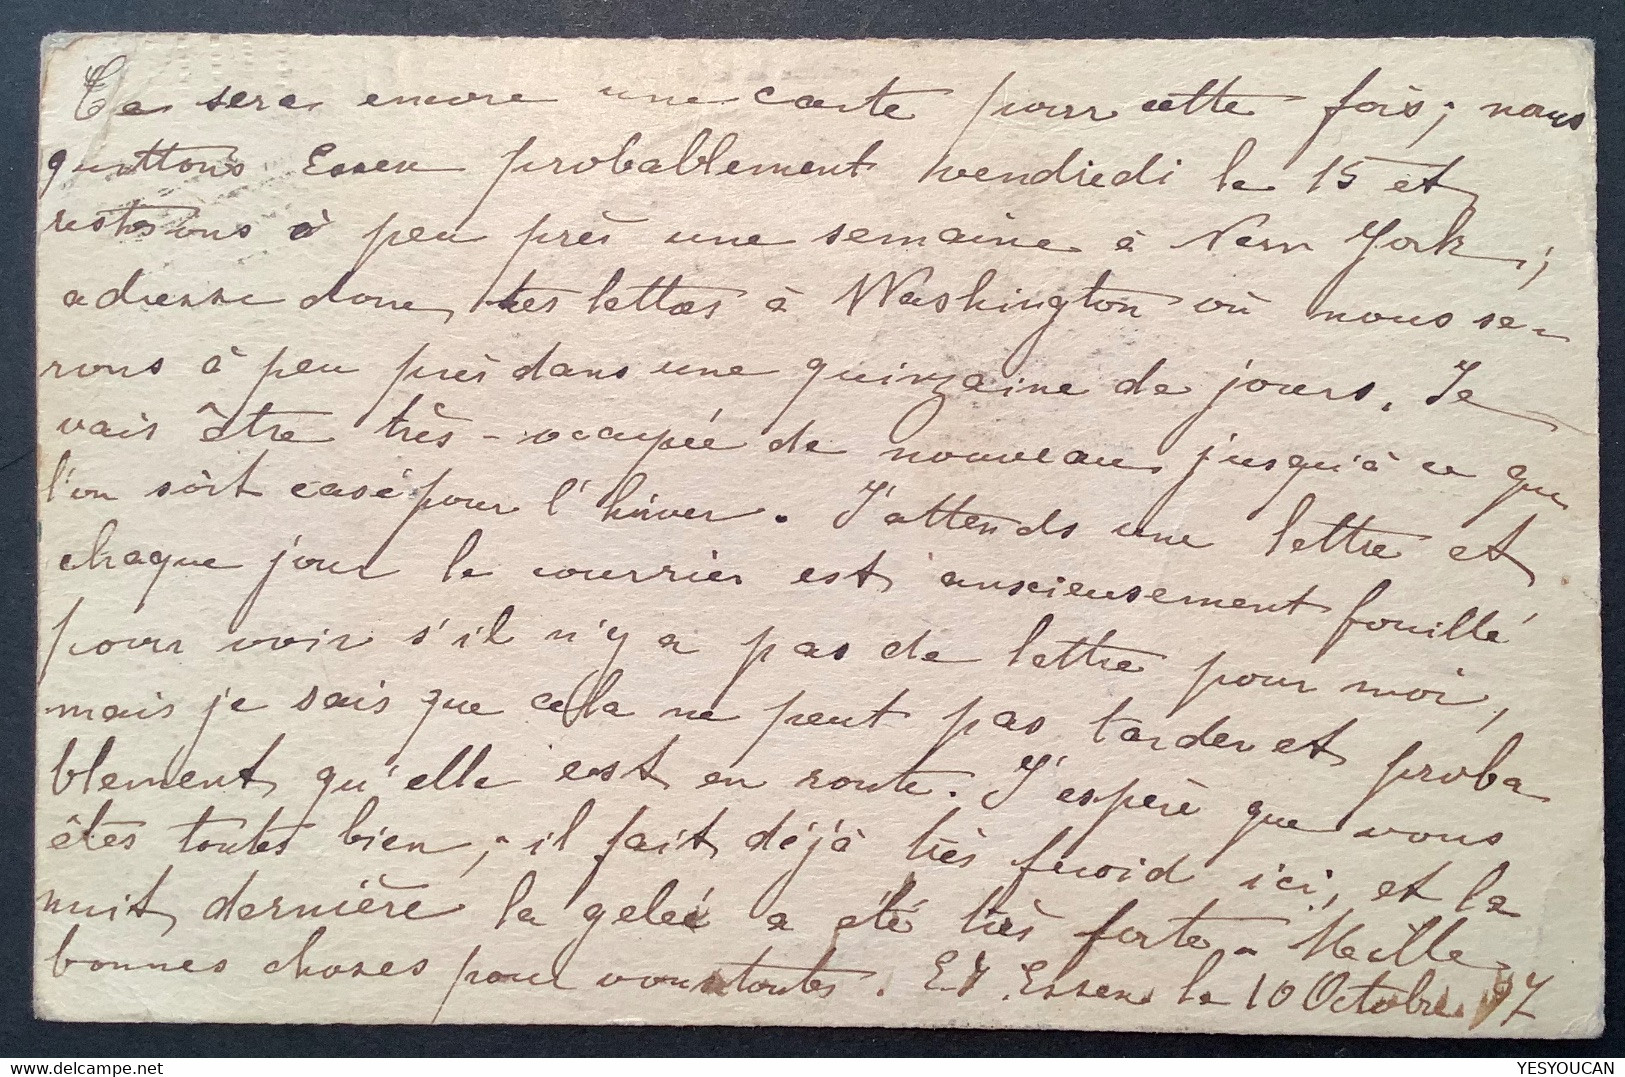 Ça sera encore une carte pour cette fois; nous
quittons Essex probablement vendredi le 15 et
restons à peu près une semaine à New York,
adresse donc tes lettres à Washington où nous se-
rons à peu près dans une quinzaine de jours. Je
vais être très-occupée de nouveau jusqu'à ce que
l'on soit casé pour l'hiver. J'attends une lettre et
chaque jour le courrier est anxieusement fouillé
pour voir s'il n'y a pas de lettre pour moi,
mais je sais que cela ne peut pas tarder et proba
blement qu'elle est en route. J'espère que vous
êtes toutes bien; il fait déjà très froid ici, et la
nuit dernière la gelée a été très forte - Meille
bonnes choses pour vous toutes. Essex le 10 Octobre 97
YESYOUCAN